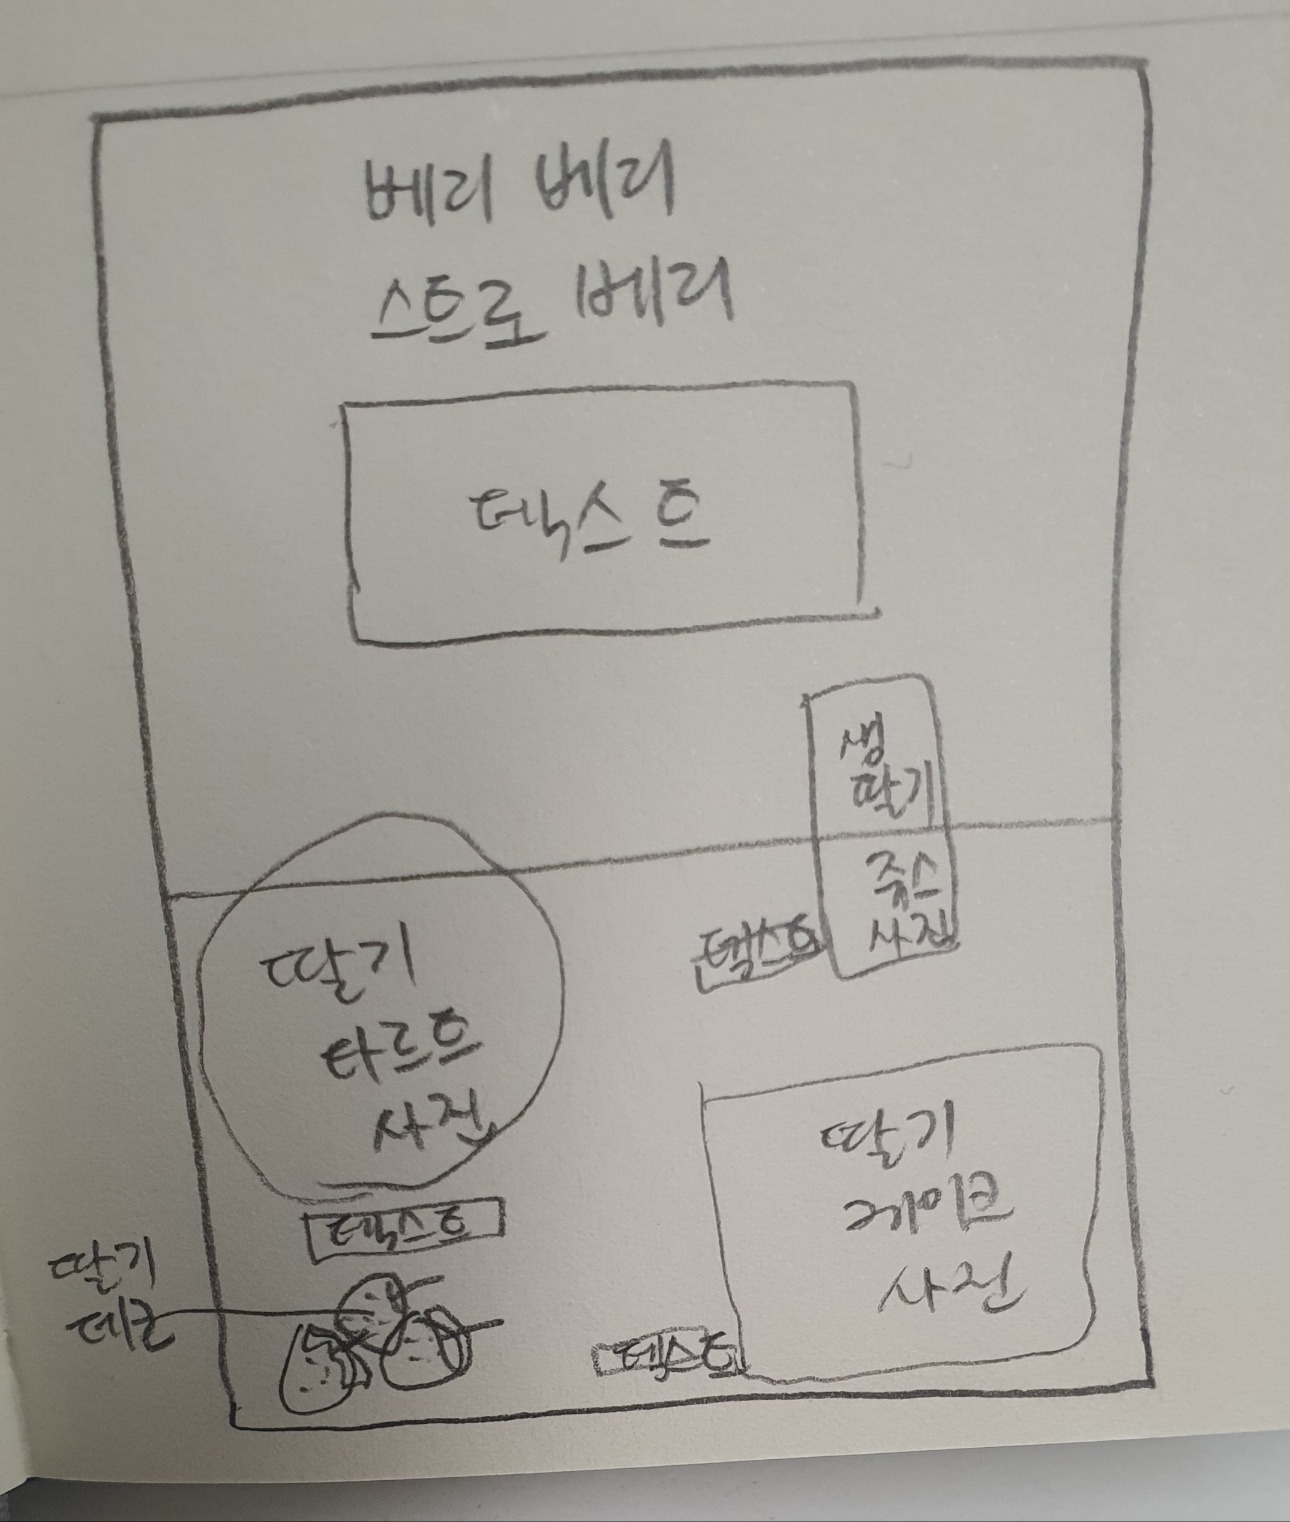 베리 베리
스트로베리
텍스트
생
딸기
쥬스
사진
텍스트
딸기
타르트
사진
텍스트
딸기
케이크
사진
텍스트
딸기
데코